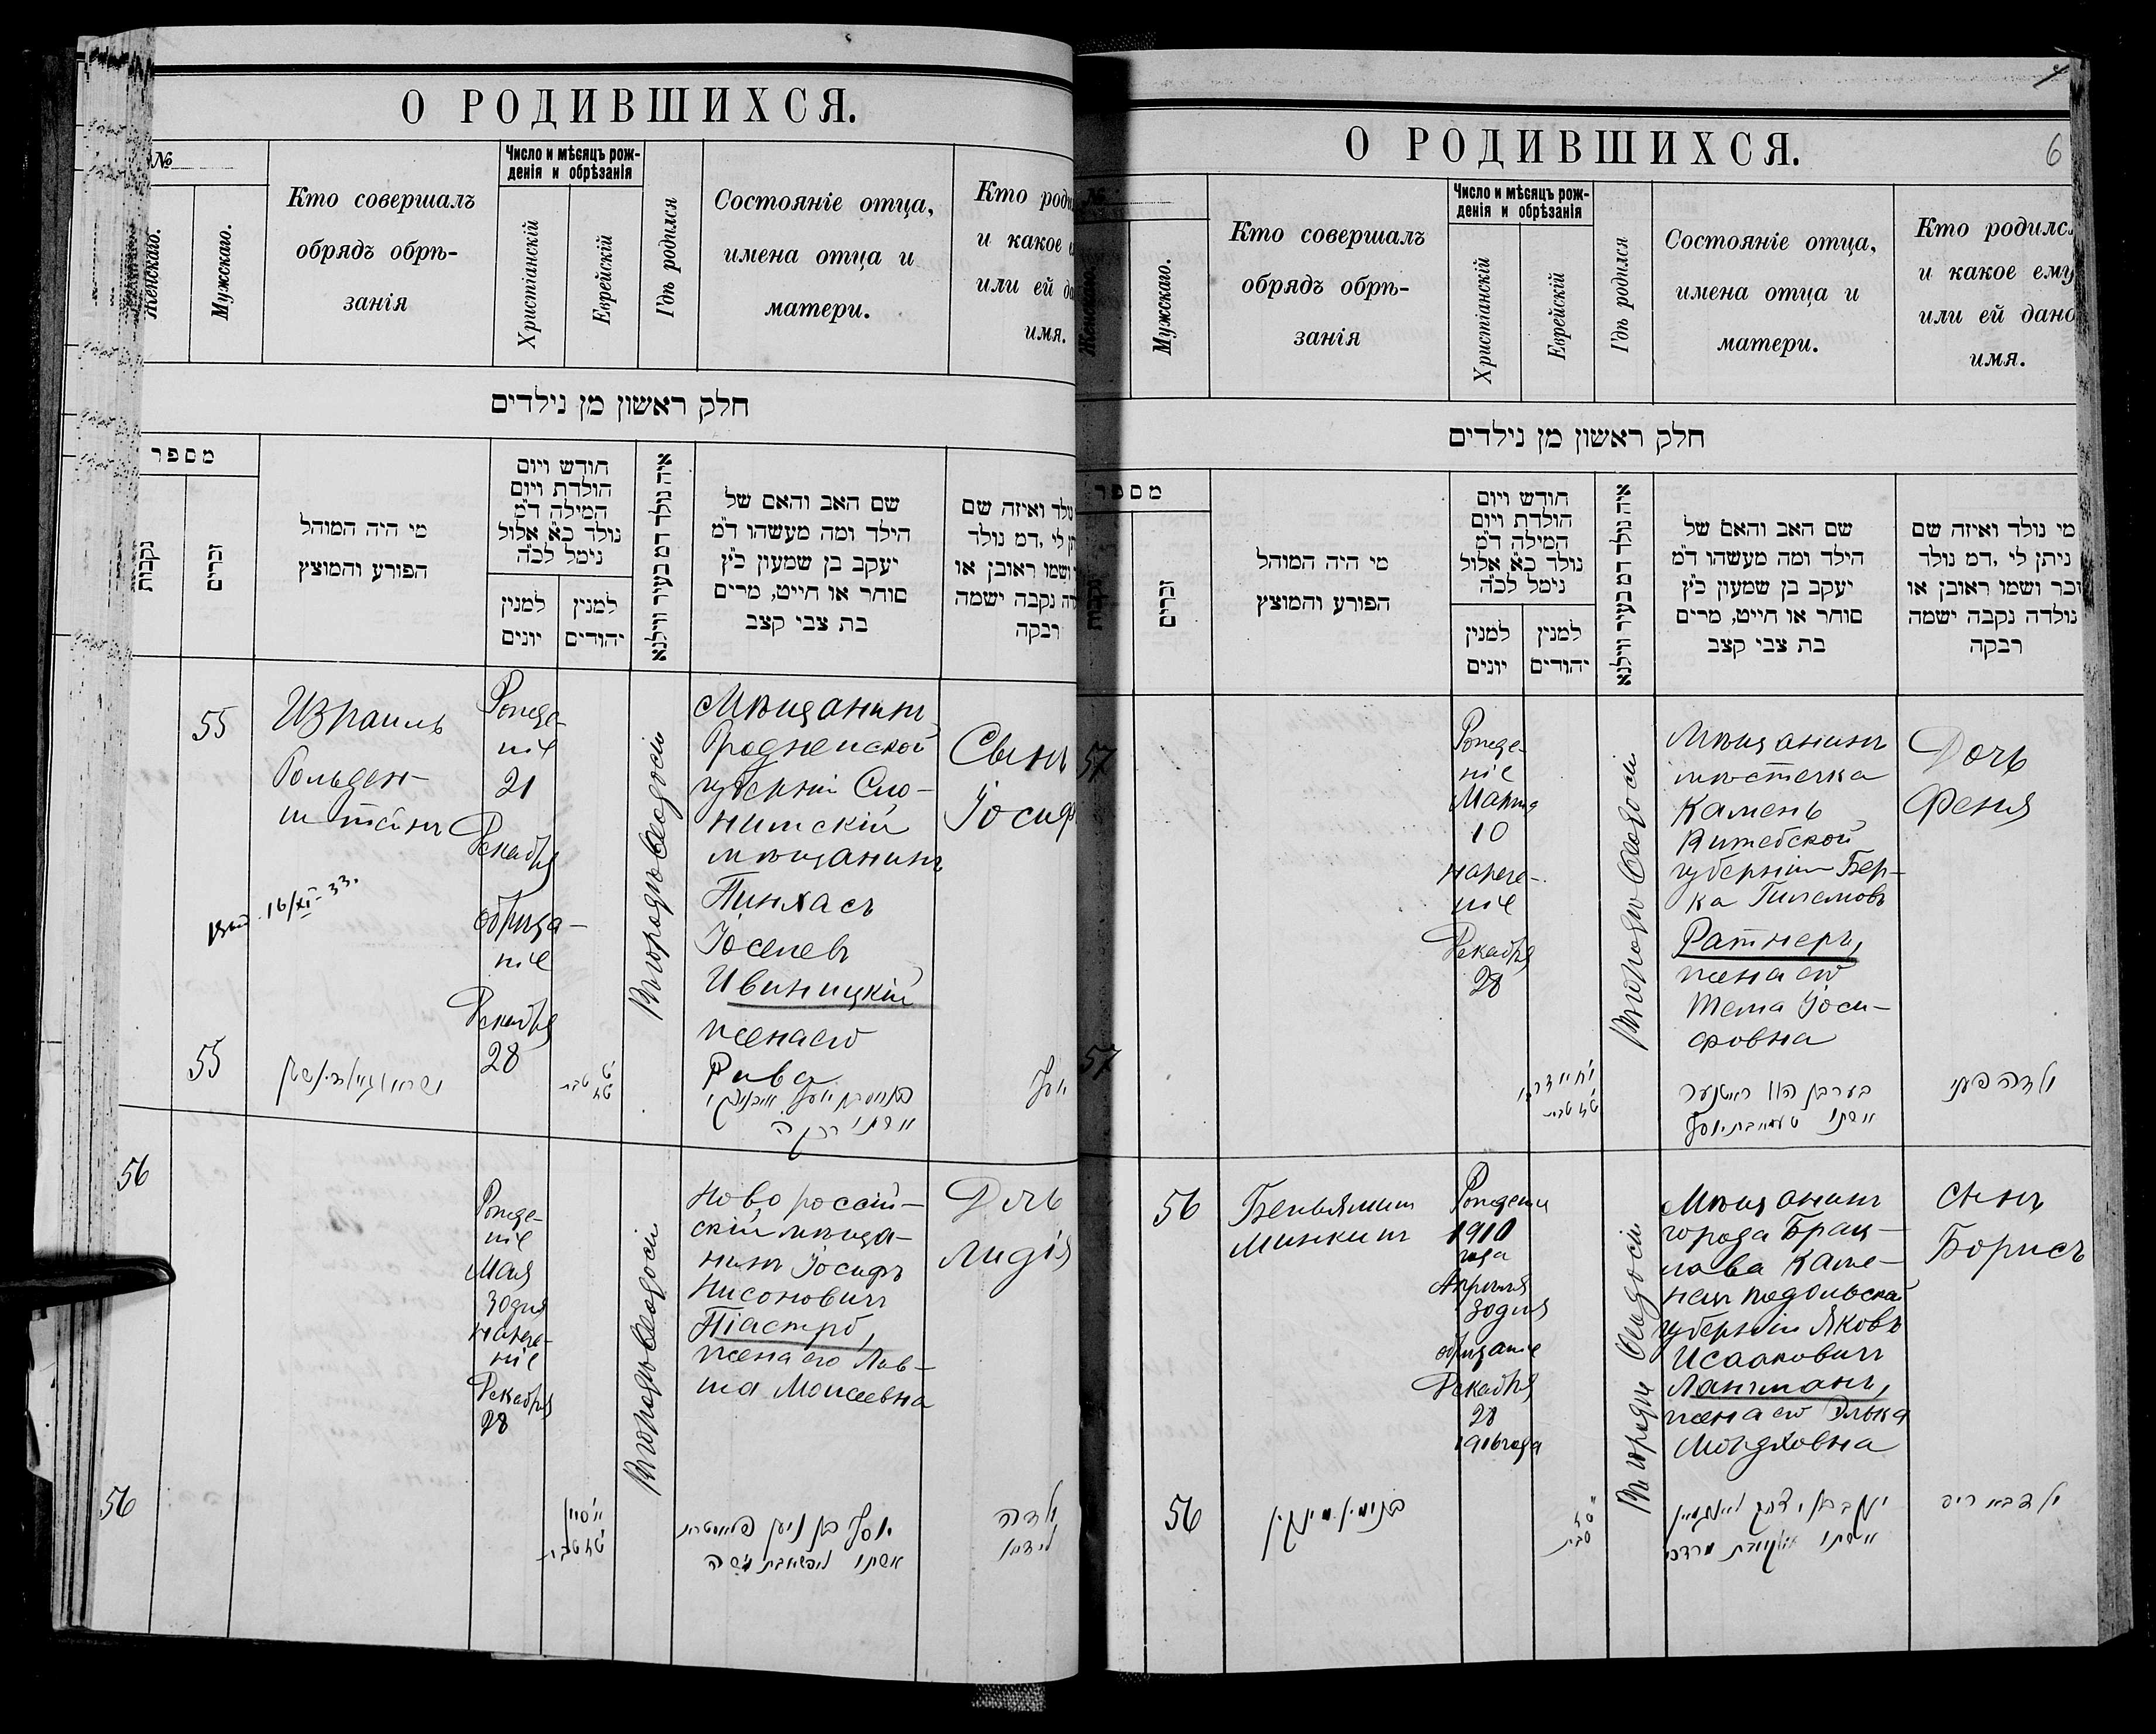 О РОДИВШИХСЯ.
№
Женскаго.
Мужскаго.
Кто совершалъ
обрядъ обрѣ-
занія
Число и мѣсяцъ рож-
денія и обрѣзанія
Христіанскій
Еврейскій
Гдѣ родился
Состояніе отца,
имена отца и
матери.
Кто роди
и какое
или ей да
имя.
חלק ראשון מן נילדים
מספר
נקבות
זכרים
מי היה המוהל
הפורע והמוצץ
חודש ויום
הולדת ויום
המילה ד"מ
נולד כ"א אלול
נימל לכ"ה
למנין
יונים
למנין
יהודים
איה נולד דמ בעיר ווילנא
שם האב והאם של
הילד ומה מעשהו ד"מ
יעקב בן שמעון כ"ץ
סוחר או חייט, מרים
בת צבי קצב
נולד ואיזה שם
תן לי ,דמ נולד
ושמו ראובן או
דה נקבה ישמה
רבקה
55
Израиль
Гольден-
штейнъ
взят 16/XI-33.
Рожде-
ніе
21
Декабря
обрѣза-
ніе
Декабря
28
Въ городѣ Ѳеодосіи
Мѣщанинъ
Гродненской
губерніи Сло-
нимскій
мѣщанинъ
Пинхасъ
Іоселевъ
Ивиницкій
жена его
Рива
Сынъ
Іосиф
55
טבת
אשתו רבקה
יוסף
56
Рожде-
ніе
Мая
30 дня
нарече-
ніе
Декабря
28
Въ городѣ Ѳеодосіи
Новороссій-
скій мѣща-
нинъ Іосифъ
Нисоновичъ
Піастро,
жена его Лив-
ша Моисеевна
Дочь
Лидія
56
טבת
יוסף בן ניסן פיאסטרא
ילדה
לידיא
О РОДИВШИХСЯ.
6
№
Женскаго.
Мужскаго.
Кто совершалъ
обрядъ обрѣ-
занія
Число и мѣсяцъ рож-
денія и обрѣзанія
Христіанскій
Еврейскій
Гдѣ родился
Состояніе отца,
имена отца и
матери.
Кто родилс
и какое ему
или ей дано
имя.
חלק ראשון מן נילדים
מספר
נקבות
זכרים
מי היה המוהל
הפורע והמוצץ
חודש ויום
הולדת ויום
המילה ד"מ
נולד כ"א אלול
נימל לכ"ה
למנין
יונים
למנין
יהודים
איה נולד דמ בעיר ווילנא
שם האב והאם של
הילד ומה מעשהו ד"מ
יעקב בן שמעון כ"ץ
סוחר או חייט, מרים
בת צבי קצב
מי נולד ואיזה שם
ניתן לי ,דמ נולד
זכר ושמו ראובן או
נולדה נקבה ישמה
רבקה
57
Рожде-
ніе
Марта
10
нарече-
ніе
Декабря
28
Въ городѣ Ѳеодосіи
Мѣщанинъ
мѣстечка
Камень
Витебской
губерніи Бер-
ка Гилемовъ
Ратнеръ,
жена его
Тема Іоси-
фовна
Дочь
Феня
57
ילדה פעני
56
Беньяминъ
Минкинъ
Рожденіе
1910
года
Апрѣля
30 дня
обрѣзаніе
Декабря
28
1916 года
Въ городѣ Ѳеодосіи
Мѣщанинъ
города Брац-
лава Каме-
нец Подольской
губерніи Яковъ
Исааковичъ
Лангманъ,
жена его Элька
Мордховна
Сынъ
Борисъ
56
בנימין מינקין
טבת